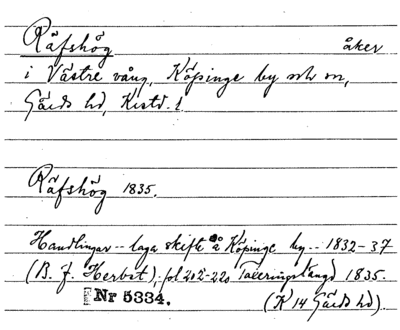 Räfshög åker
i Västre vång, Köpinge by och sn,
Gärds hd, Kristd. l.
Räfshög 1835.
Handlingar -- laga skifte å Köpinge by -- 1832-37
(B. J. Herbst). fol 202-220 Taxeringslängd 1835.
Nr 5334. (K 14 Gärds hd).